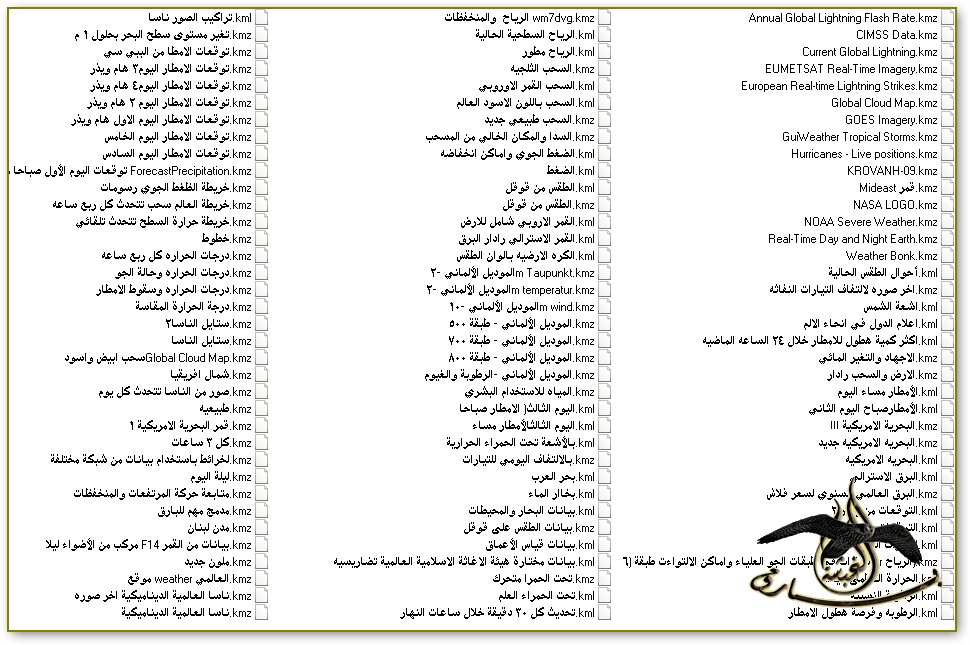 Annual Global Lightning Flash Rate.kmz
CIMSS Data.kmz
Current Global Lightning.kmz
EUMETSAT Real-Time Imagery.kmz
European Real-time Lightning Strikes.kmz
Global Cloud Map.kmz
GOES Imagery.kmz
GuiWeather Tropical Storms.kmz
Hurricanes - Live positions.kmz
KROVANH-09.kmz
Mideast قمر.kmz
NASA LOGO.kmz
NOAA Severe Weather.kmz
Real-Time Day and Night Earth.kmz
Weather Bonk.kmz
أحوال الطقس الحالية.kml
اخر صوره لالتفاف التيارات النفاثه.kmz
اشعة الشمس.kml
اعلام الدول في انحاء الالم.kml
اكثر كمية هطول للامطار خلال ٢٤ الساعه الماضيه.kml
الاجهاد والتغير المائي.kml
الارض والسحب رادار.kmz
الأمطار مساء اليوم.kml
الأمطارصباح اليوم الثاني.kml
البحرية الامريكية III.kml
البحريه الامريكيه جديد.kml
البحريه الامريكيه.kml
البرق الاسترالي.kml
البرق العالمي السنوي لسعر فلاش.kml
التوقعات من.kml
.kml
.kml
الرياح طبقات الجو العلياء واماكن الالتواءت طبقة (٦.kml
الحرارة.kml
الرطوبة النسبية.kml
الرطوبه وفرصة هطول الامطار.kml
الرياح والمنخفظات wm7dvg.kmz
الرياح السطحية الحالية.kml
الرياح مطور.kml
السحب الثلجيه.kmz
السحب القمر الاوروبي.kml
السحب باللون الاسود العالم.kmz
السحب طبيعي جديد.kmz
السدا والمكان الخالي من المسحب.kml
الضغط الجوي واماكن انخفاضه.kml
الضغط.kml
الطقس من قوقل.kml
الطقس من قوقل.kmz
القمر الاروبي شامل للارض.kml
القمر الاسترالي رادار البرق.kml
الكره الارضيه بالوان الطقس.kml
الموديل الألماني -٢m Taupunkt.kmz
الموديل الألماني -٢m temperatur.kmz
الموديل الألماني -١٠m wind.kmz
الموديل الألماني - طبقة ٥٠٠.kmz
الموديل الألماني - طبقة ٧٠٠.kmz
الموديل الألماني - طبقة ٨٠٠.kmz
الموديل الألماني -الرطوبة والغيوم.kmz
المياه للاستخدام البشري.kmz
اليوم الثالث( الامطار صباحا.kml
اليوم الثالثالأمطار مساء.kml
بالأشعة تحت الحمراء الحرارية.kml
بالالتفاف اليومي للتيارات.kmz
بحر العرب.kml
بخاار الماء.kml
بيانات البحار والمحيطات.kml
بيانات الطقس على قوقل.kmz
بيانات قياس الأعماق.kml
بيانات مختارة هيئة الاغاثة الاسلامية العالمية تضاريسيه.kml
تحت الحمرا متحرك.kmz
تحت الحمراء العلم.kml
تحديث كل ٣٠ دقيقة خلال ساعات النهار.kml
تراكيب الصور ناسا.kml
تغير مستوى سطح البحر بحلول ١ م.kmz
توقعات الامطا من الببي سي.kmz
توقعات الامطار اليوم٣ هام ويذر.kmz
توقعات الامطار اليوم٤ هام ويذر.kmz
توقعات الامطار اليوم ٢ هام ويذر.kmz
توقعات الامطار اليوم الاول هام ويذر.kmz
توقعات الامطار اليوم الخامس.kmz
توقعات الامطار اليوم السادس.kmz
توقعات اليوم الأول صباحا ForecastPrecipitation.kmz
خريطة الظغط الجوي رسومات.kmz
خريطة العالم سحب تتحدث كل ربع ساعه.kmz
خريطة حرارة السطح تتحدث تلقائي.kmz
خطوط.kmz
درجات الحراره كل ربع ساعه.kmz
درجات الحراره وحالة الجو.kmz
درجات الحراره وسقوط الامطار.kmz
درجة الحرارة المقاسة.kmz
ستايل الناسا٢.kmz
ستايل الناسا.kmz
سحب ابيض واسودGlobal Cloud Map.kmz
شمال افريقيا.kmz
صور من الناسا تتحدث كل يوم.kmz
طبيعيه.kmz
قمر البحرية الامريكية ١.kmz
كل ٣ ساعات.kmz
لخرائط باستخدام بيانات من شبكة مختلفة.kmz
ليلة اليوم.kmz
متابعة حركة المرتفعات والمنخفظات.kmz
مدمج مهم للبارق.kmz
مدن لبنان.kmz
بيانات من القمر F14 مركب من الأضواء ليلا.kmz
ملون جديد.kmz
موقع weather العالمي.kmz
ناسا العالمية الديناميكية اخر صوره.kmz
ناسا العالمية الديناميكية.kmz